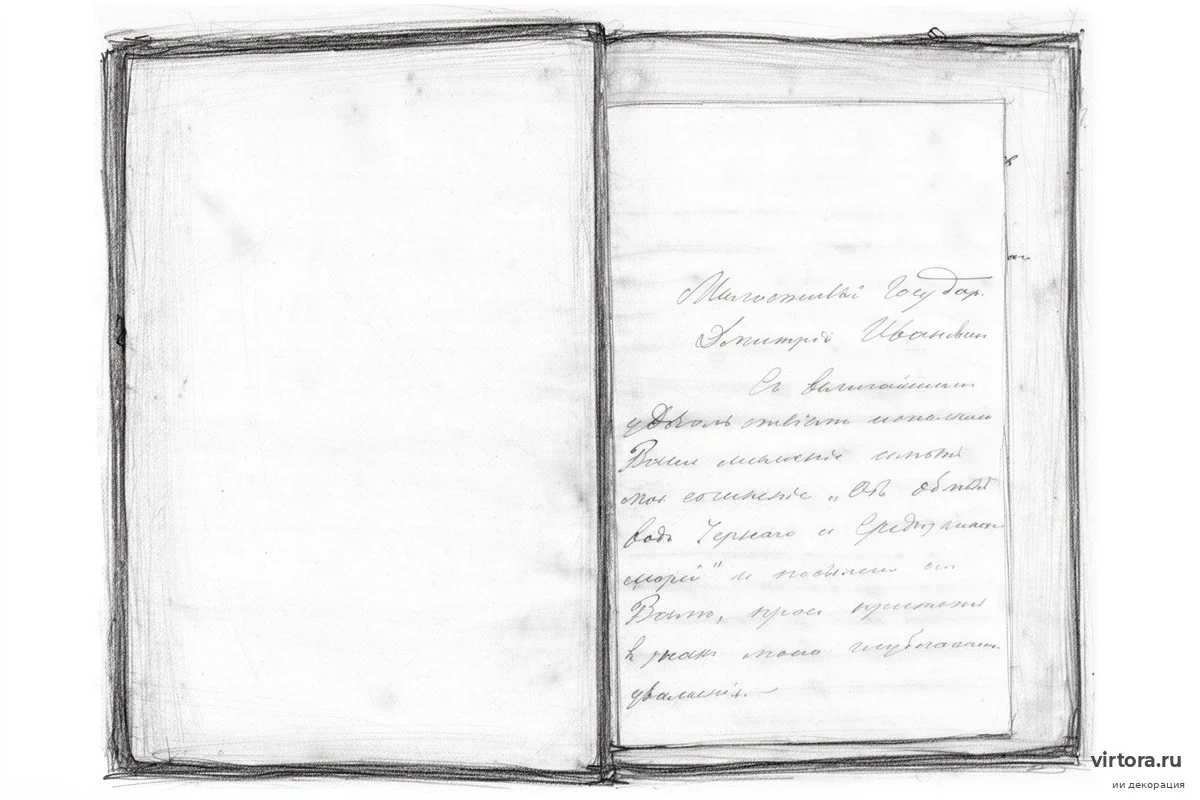 Милостивый Государ.
Дмитрій Иванович
Съ величайшим
удовольствіем исполняю
Ваше желаніе иметь
мое сочиненіе „Объ обмене
водъ Чернаго и Средиземного
морей" и посылаю
Вам, прося принять
в знакъ моего глубочайшаго
уваженія.
virtora.ru
ии декорация